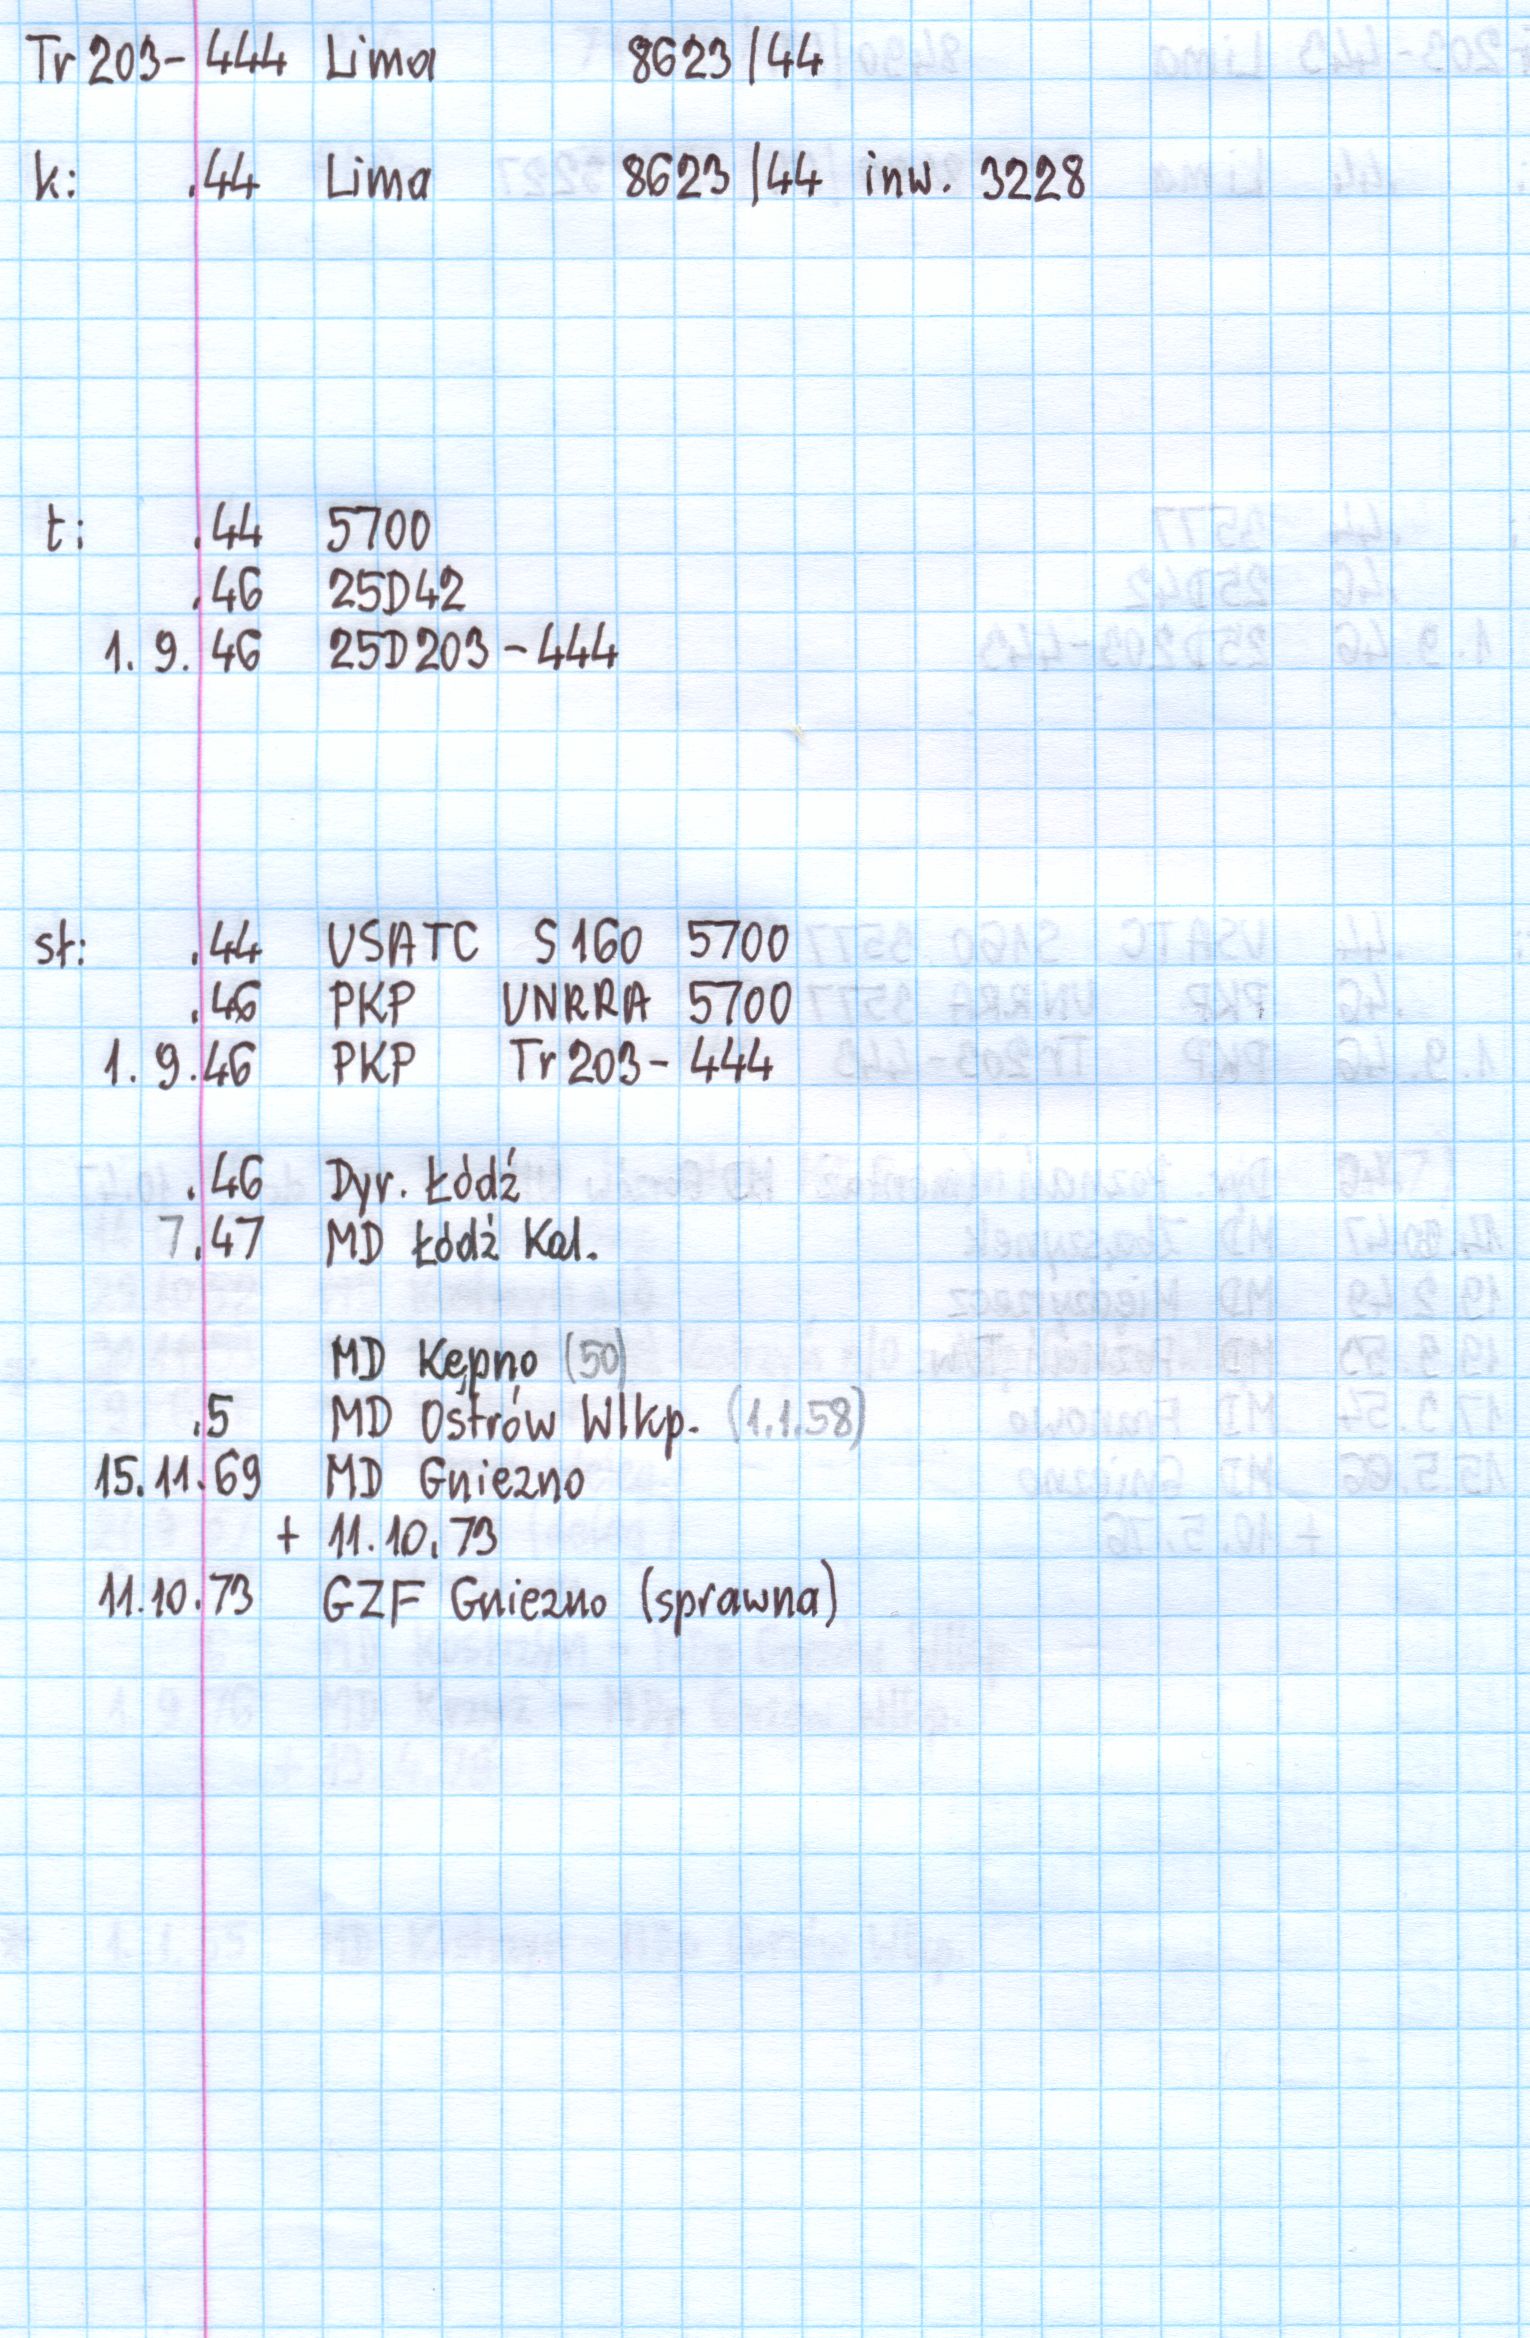 Tr 203-444 Lima 8623/44
k: .44 Lima 8623/44 inw. 3228
t: .44 5700
.46 25D42
1.9.46 25D203-444
st: .44 USATC S160 5700
.46 PKP UNRRA 5700
1.9.46 PKP Tr203-444
.46 Dyr. Łódź
7.47 MD Łódź Kal.
MD Kępno (50)
.5 MD Ostrów Wlkp. (1.1.58)
15.11.69 MD Gniezno
+ 11.10.73
11.10.73 GZF Gniezno (sprawna)